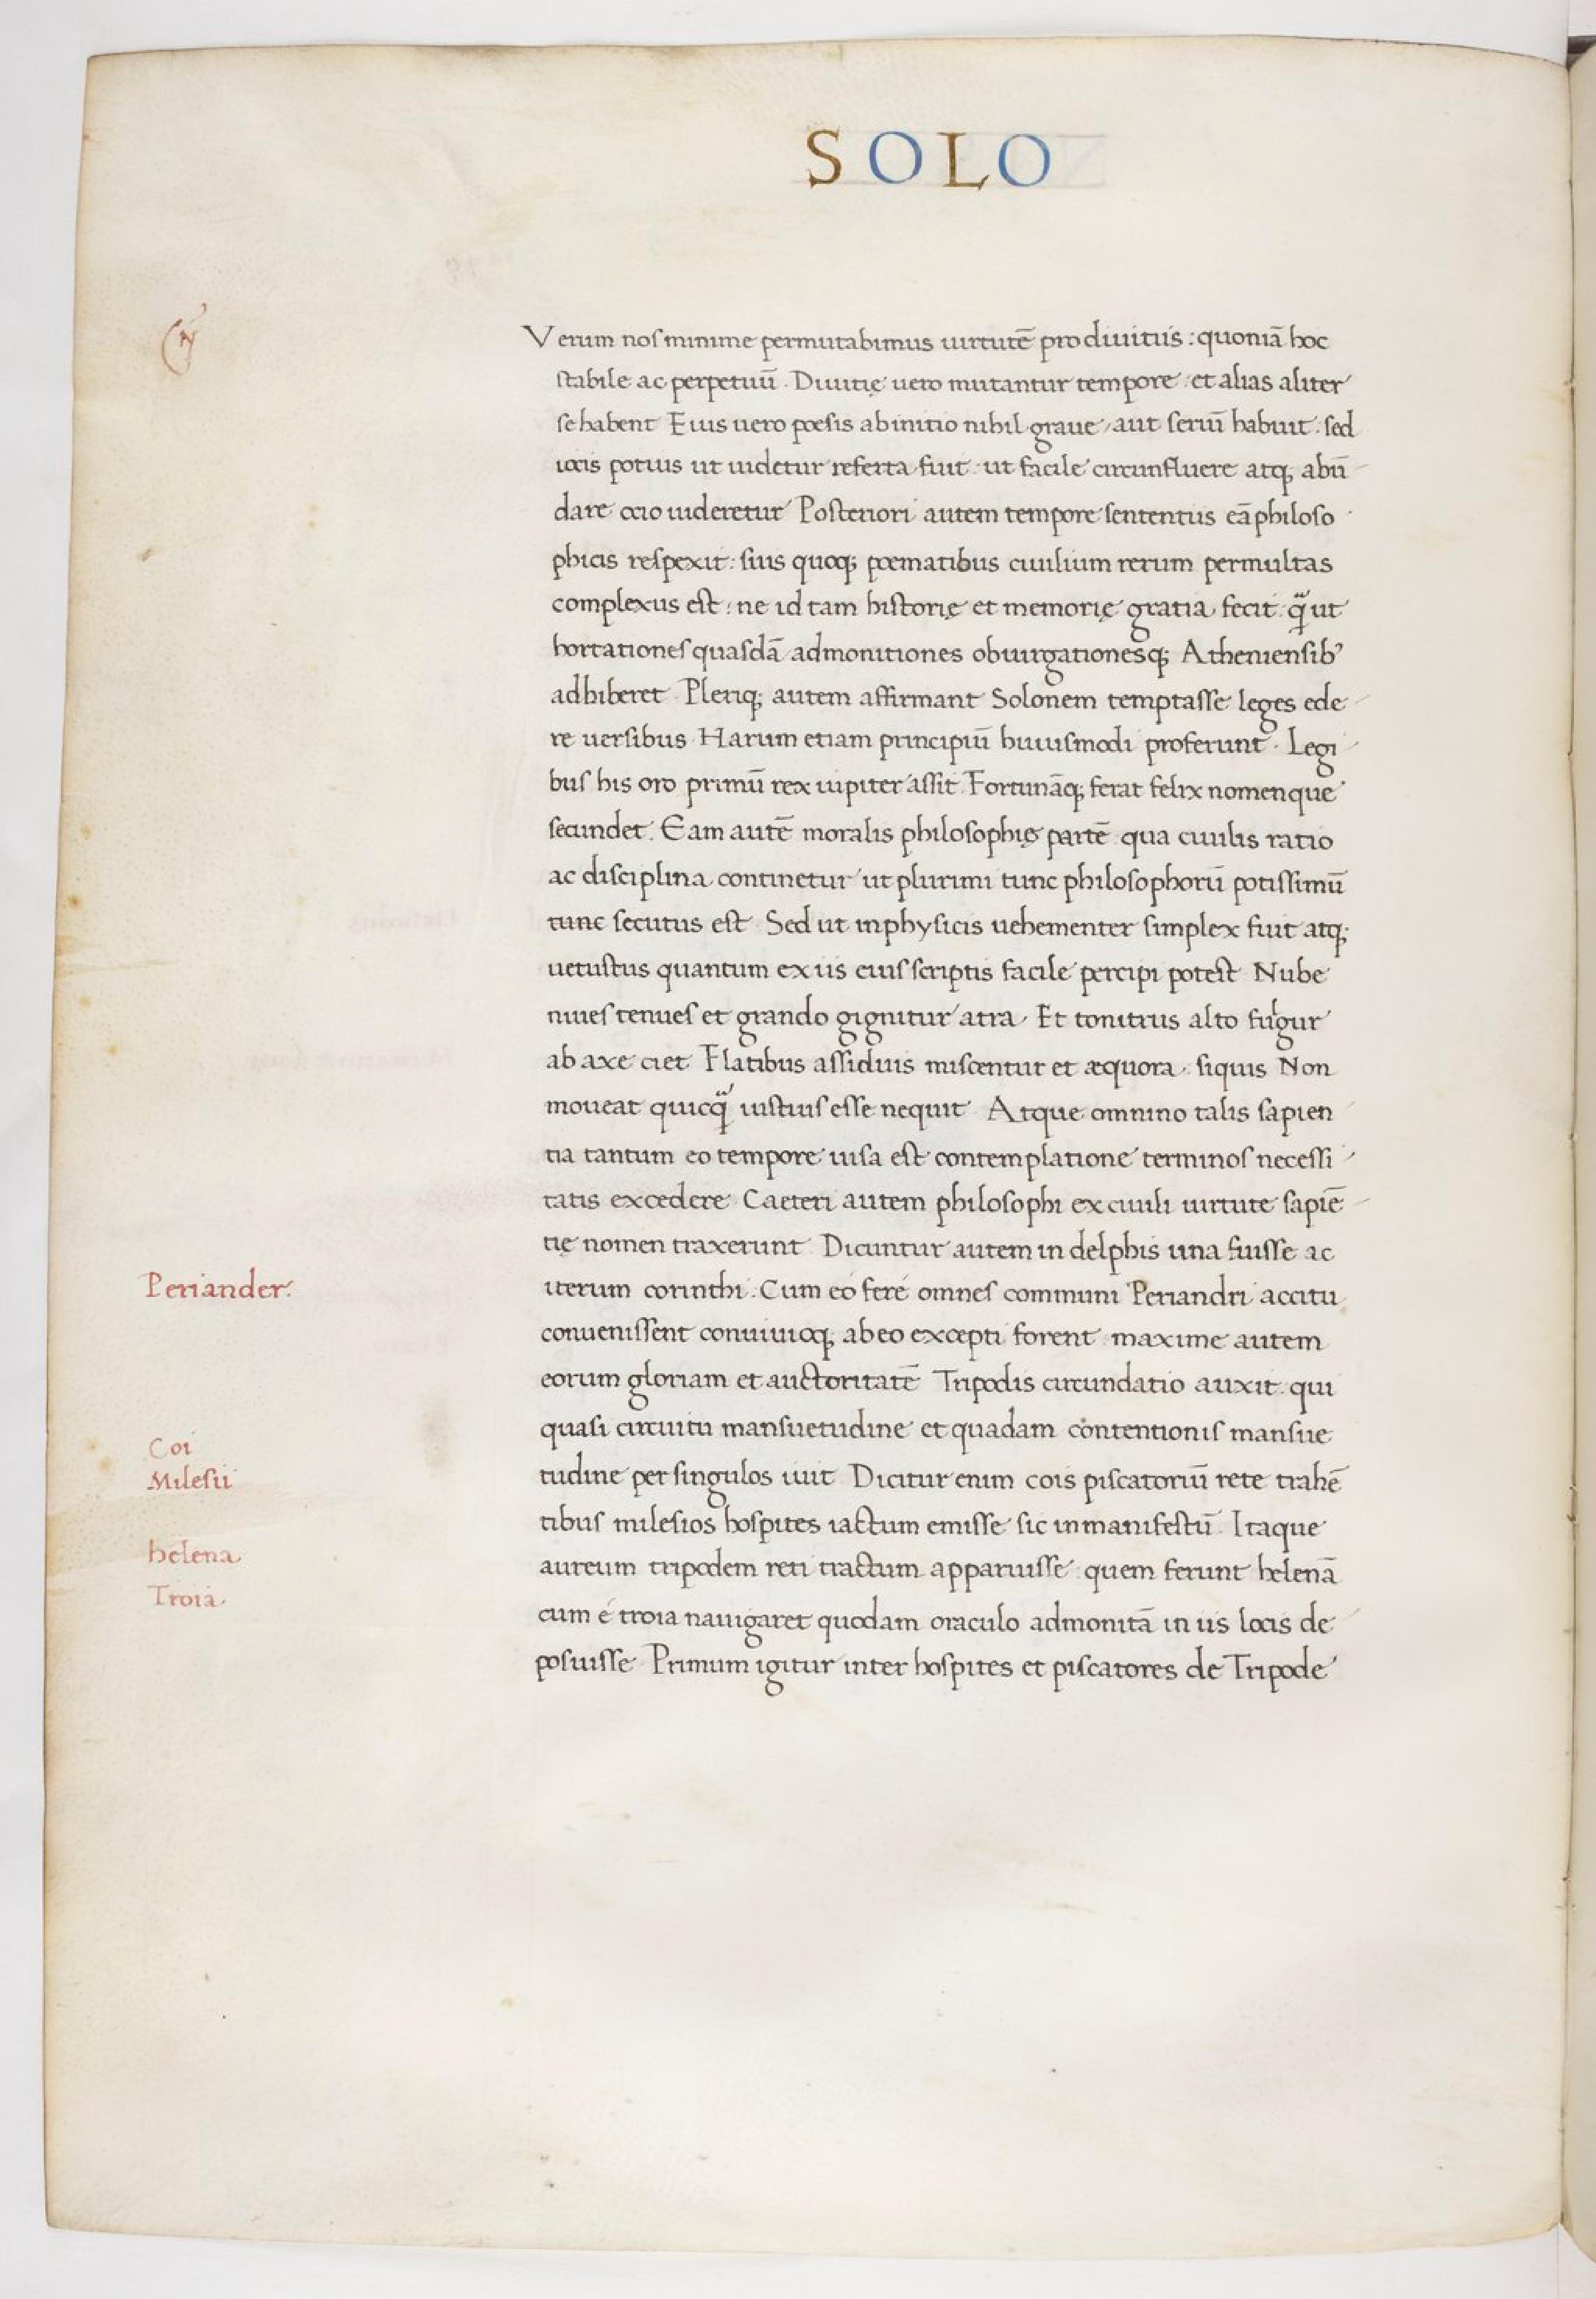 SOLO
Verum nos minime permutabimus uirtutē pro diuitiis : quoniā hoc
stabile ac perpetuū . Diuitię uero mutantur tempore : et alias aliter
se habent Eius uero poesis ab initio nihil graue / aut seriū habuit : sed
iocis potius ut uidetur referta fuit : ut facile circunfluere atq; abū
dare ocio uideretur Posteriori autem tempore sententiis eā philoso
phicis respexit : suis quoq; poematibus ciuilium rerum permultas
complexus est : ne id tam historię et memorię gratia fecit : q̄ ut
hortationes quasdā admonitiones obiurgationesq; Atheniensib’
adhiberet Pleriq; autem affirmant Solonem temptasse leges ede
re uersibus Harum etiam principiū huiusmodi proferunt . Legi
bus his oro primū rex iupiter assit Fortunāq; ferat felix nomenque
secundet . Eam autē moralis philosophię partē qua ciuilis ratio
ac disciplina continetur ut plurimi tunc philosophorū potissimū
tunc secutus est Sed ut in physicis uehementer simplex fuit atq;
uetustus quantum ex iis eius scriptis facile percipi potest Nube
niues tenues et grando gignitur atra Et tonitrus alto fulgur
ab axe ciet Flatibus assiduis miscentur et æquora : siquis Non
moueat quicq̄ iustius esse nequit Atque omnino talis sapien
tia tantum eo tempore uisa est contemplatione terminos necessi
tatis excedere Caeteri autem philosophi ex ciuili uirtute sapiē
tię nomen traxerunt Dicuntur autem in delphis una fuisse ac
Periander.
iterum corinthi : Cum eo fere omnes communi Periandri accitu
conuenissent conuiuioq; ab eo excepti forent maxime autem
eorum gloriam et auctoritatē Tripodis circundatio auxit : qui
quasi circuitu mansuetudine et quadam contentionis mansue
Coi
Milesii
tudine per singulos iuit Dicitur enim cois piscatoriū rete trahē
tibus milesios hospites iactum emisse sic in manifestū Itaque
helena
aureum tripodem reti tractum apparuisse : quem ferunt helenā
Troia
cum é troia nauigaret quodam oraculo admonitā in iis locis de
posuisse Primum igitur inter hospites et piscatores de Tripode